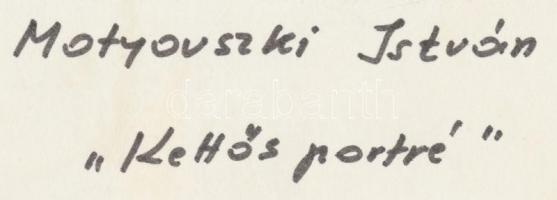 Motyovszki István
darabanth
„Kettős portré”